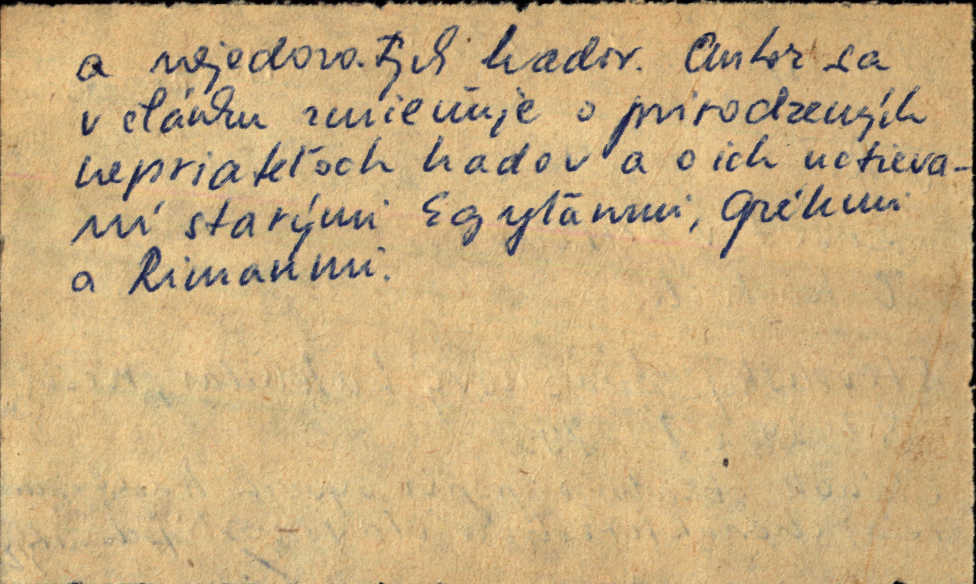 a nejedovatých hadov. Autor sa
v článku zmieňuje o prirodzených
nepriateľoch hadov a o ich uctieva-
ní starými Egyptänmi, Grékmi
a Rimanmi.